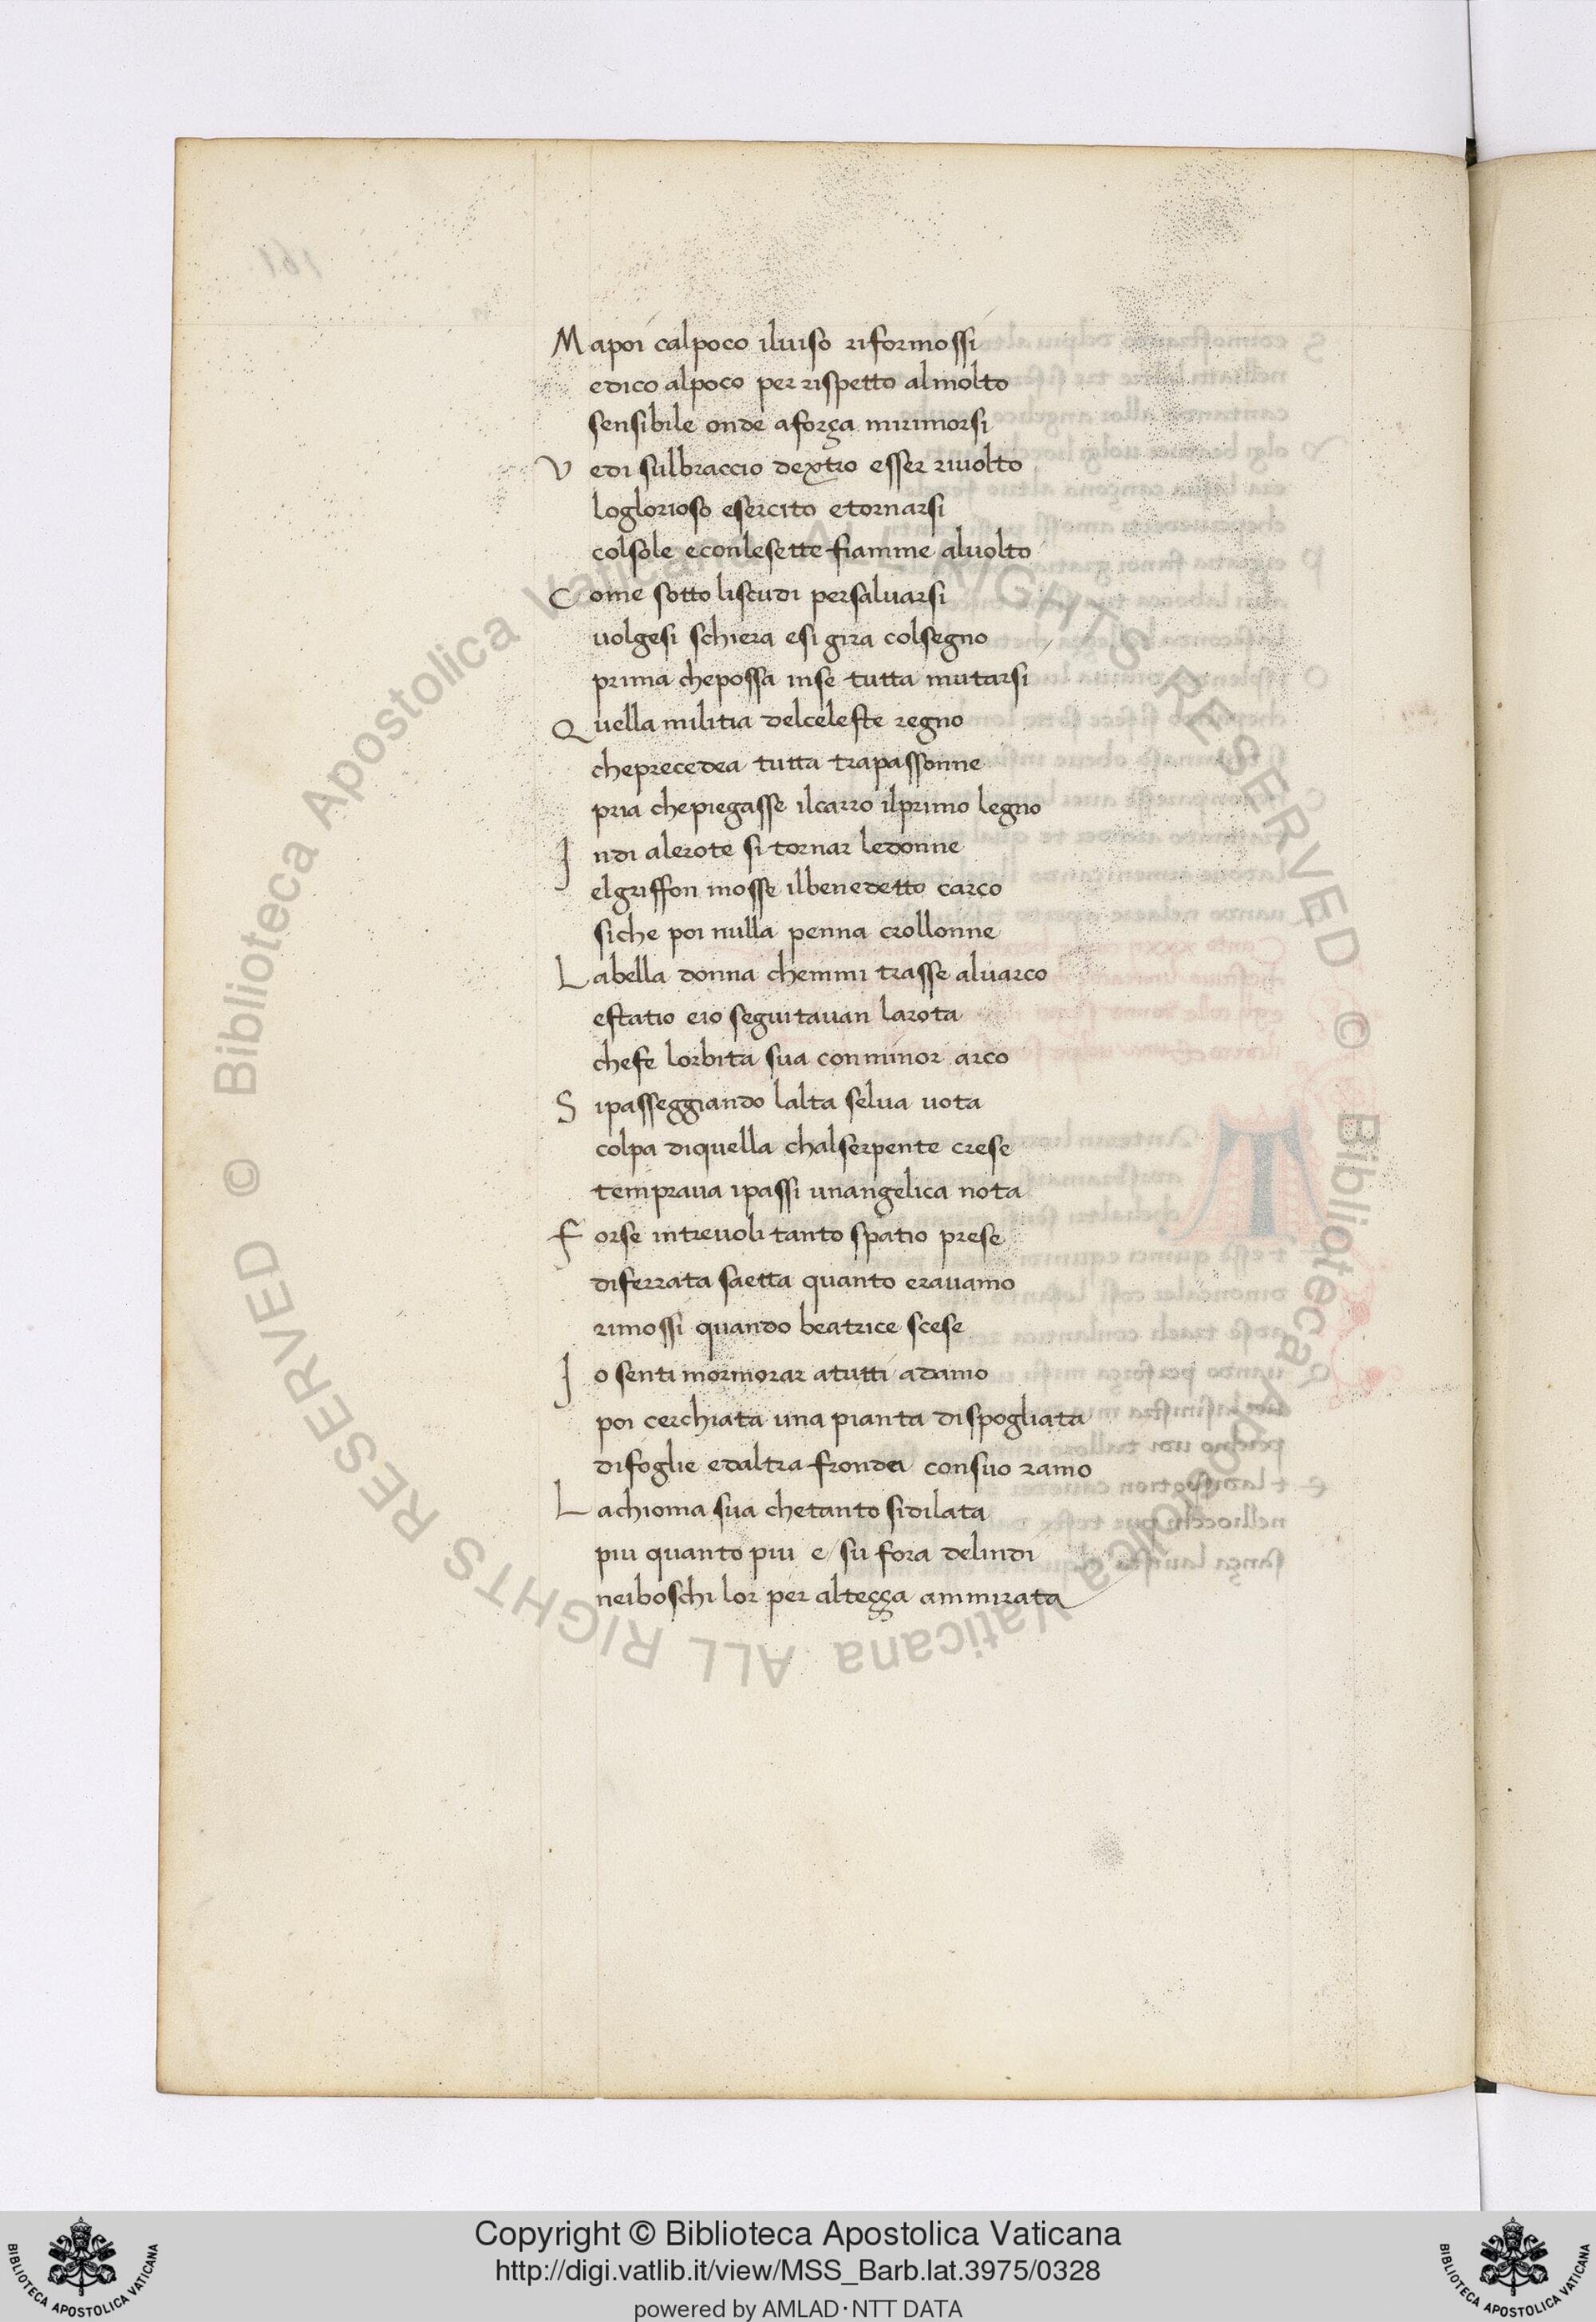 M apoi calpoco iluiso riformossi
edico alpoco per rispetto almolto
sensibile onde aforça mirimorsi
V edi sulbraccio dextro esser riuolto
loglorioso esercito etornarsi
colsole econlesette fiamme aluolto
C ome sotto liscudi persaluarsi
uolgesi schiera esi gira colsegno
prima chepossa inse tutta mutarsi
Q uella militia delceleste regno
cheprecedea tutta trapassonne
pria chepiegasse ilcarro ilprimo legno
I ndi alerote si tornar ledonne
elgriffon mosse ilbenedetto carco
siche poi nulla penna crollonne
L abella donna chemmi trasse aluarco
estatio eio seguitauan larota
chefe lorbita sua conminor arco
S ipasseggiando lalta selua uota
colpa diquella chalserpente crese
tempraua ipassi unangelica nota
F orse intreuoli tanto spatio prese
diferrata saetta quanto erauamo
rimossi quando beatrice scese
I o senti mormorar atutti adamo
poi cerchiata una pianta dispogliata
difoglie edaltra fronda consuo ramo
L achioma sua chetanto sidilata
piu quanto piu e su fora delindi
neiboschi lor per alteçça ammirata
Copyright © Biblioteca Apostolica Vaticana
http://digi.vatlib.it/view/MSS_Barb.lat.3975/0328
powered by AMLAD・NTT DATA